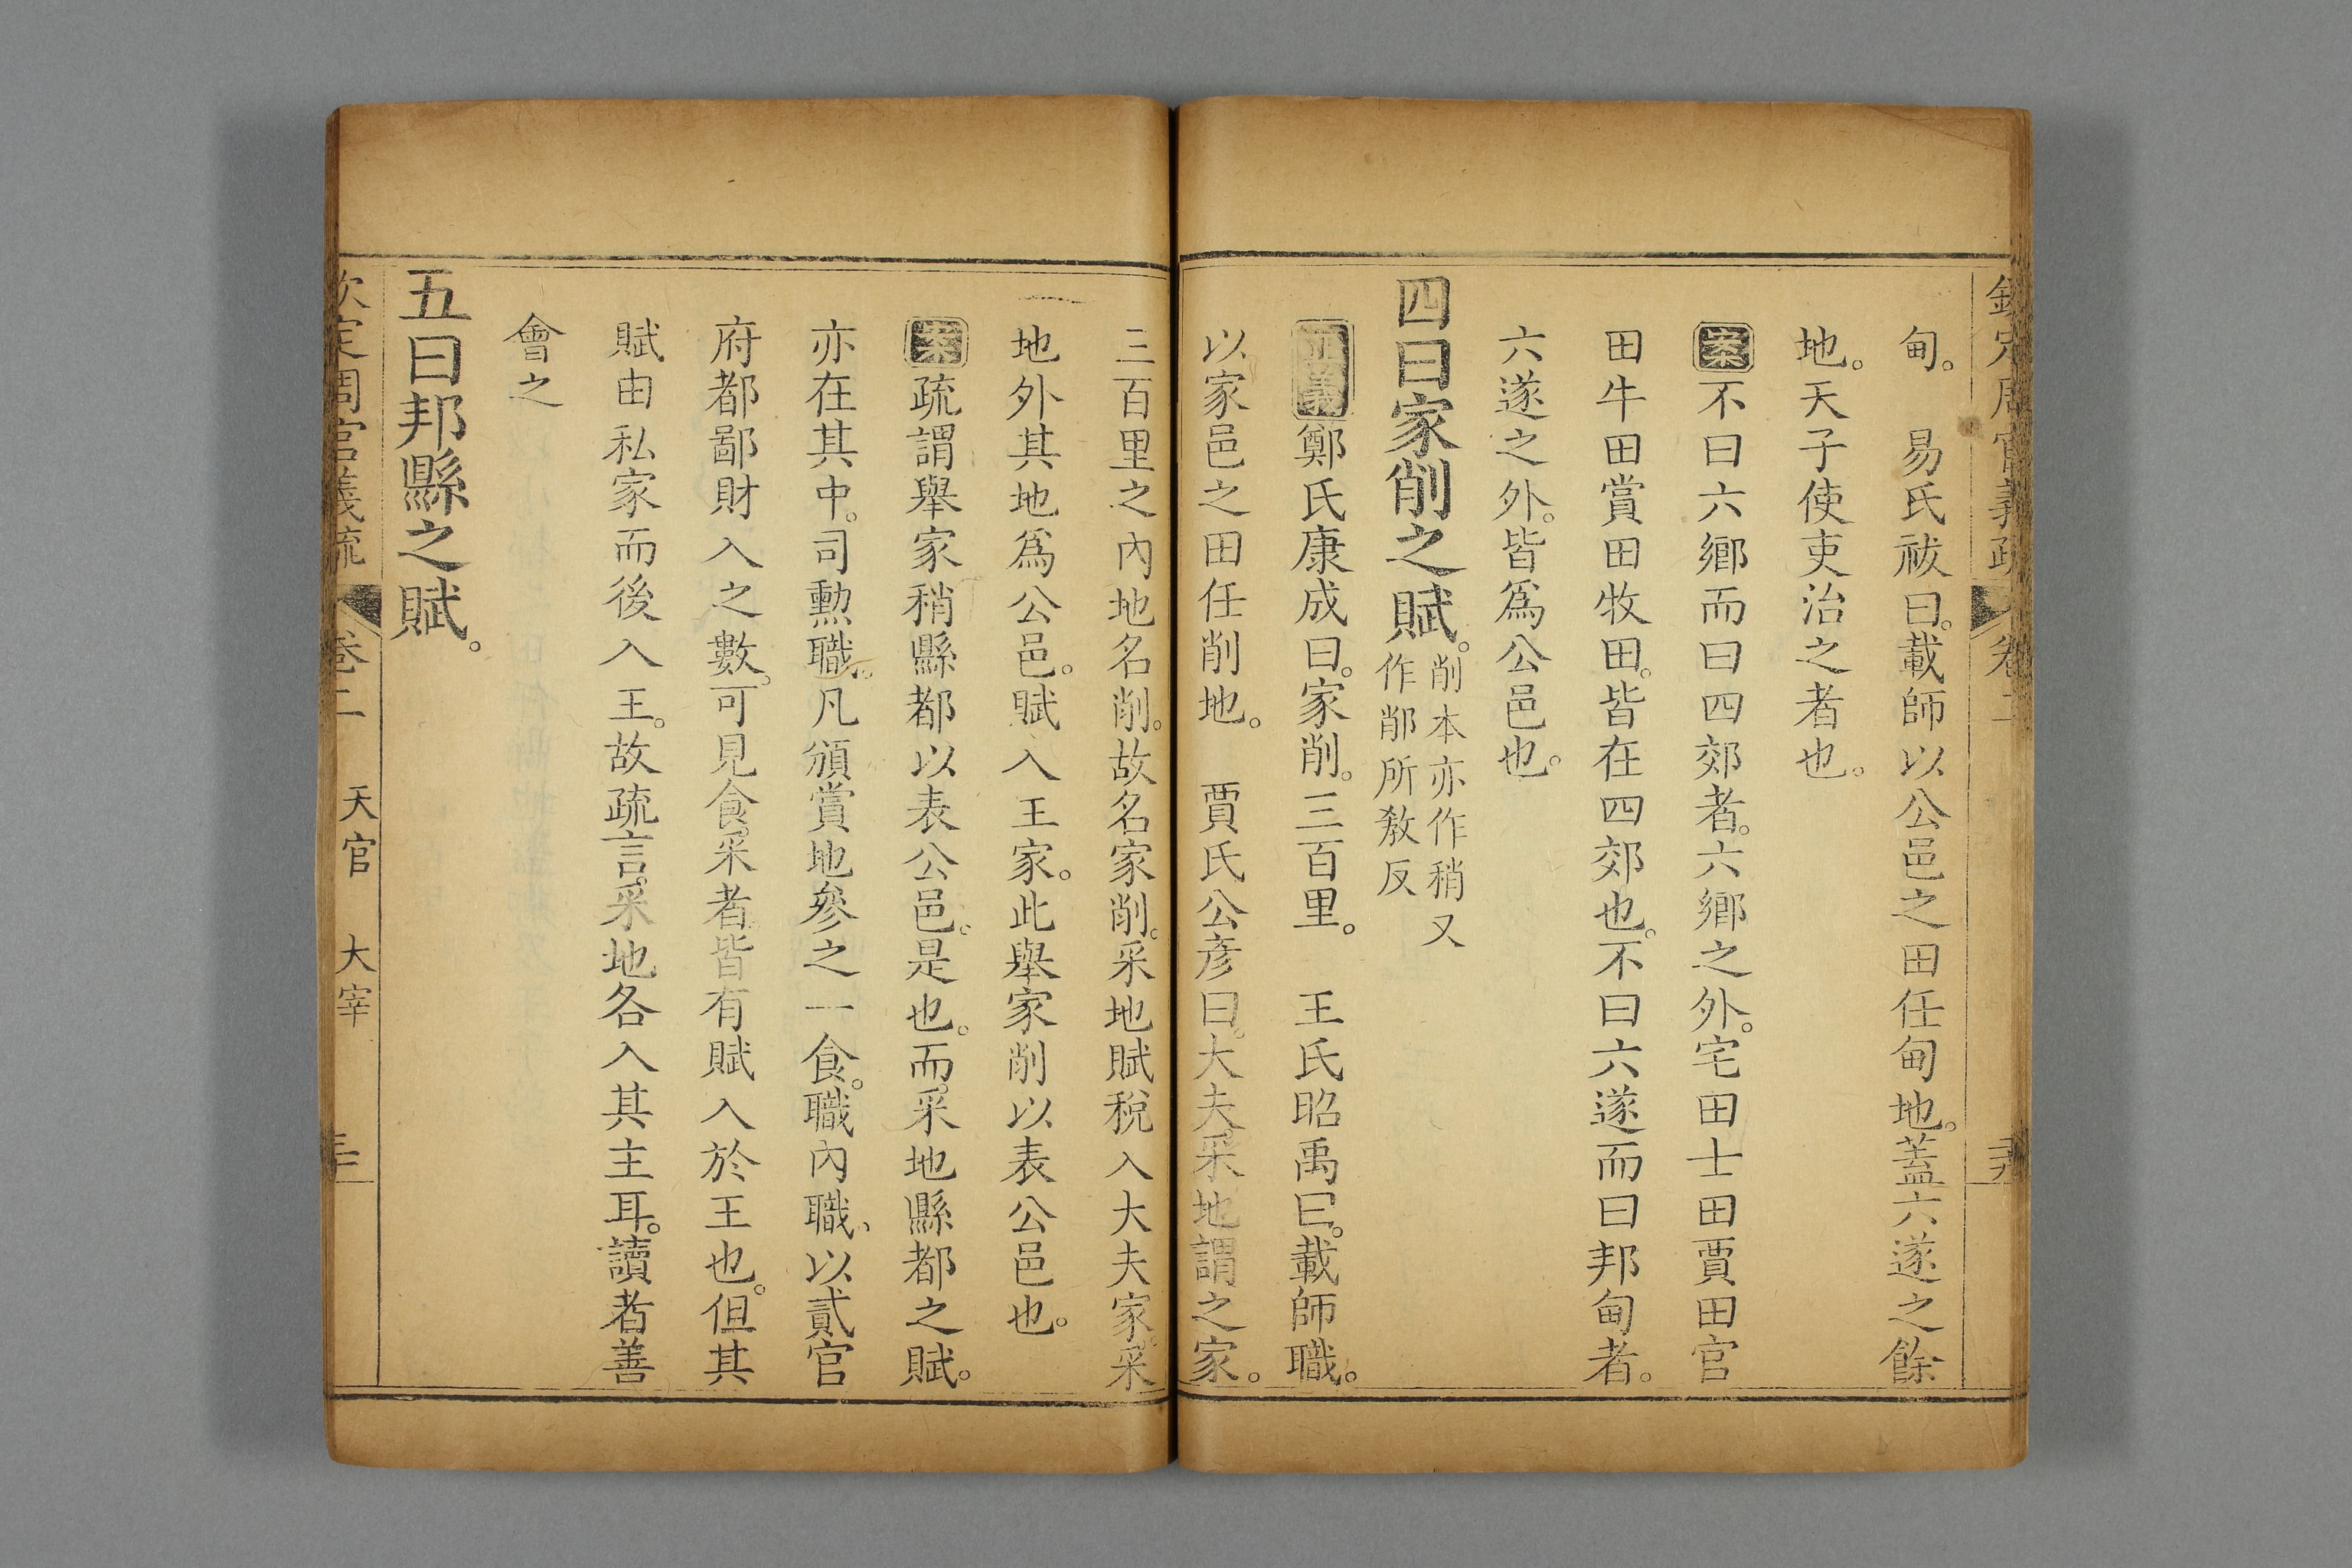 欽定周官義疏 卷二
甸。 易氏祓曰。載師以公邑之田任甸地。蓋六遂之餘
地。天子使吏治之者也。
案不曰六鄉而曰四郊者。六鄉之外。宅田士田賈田官
田牛田賞田牧田。皆在四郊也。不曰六遂而曰邦甸者。
六遂之外。皆為公邑也。
四曰家削之賦。削本亦作稍又
作䣢所敎反
正義鄭氏康成曰。家削。三百里。 王氏昭禹曰。載師職。
以家邑之田任削地。 賈氏公彥曰。大夫采地謂之家。
三百里之內地名削。故名家削。采地賦稅入大夫家。采
地外其地爲公邑。賦入王家。此舉家削以表公邑也。
案疏謂舉家稍縣都以表公邑。是也。而采地縣都之賦。
亦在其中。司勳職。凡頒賞地參之一食。職內職、以貳官
府都鄙財入之數。可見食采者皆有賦入於王也。但其
賦由私家而後入王。故疏言。采地各入其主耳。讀者善
會之
五曰邦縣之賦。
欽定周官義疏 卷二 天官 大宰